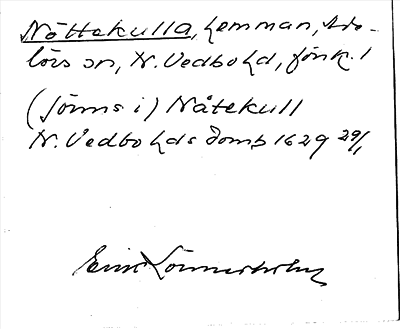 Nåttekulla, hemman, Ade-
lövs sn, N. Vedbo hd, Jönk. l
(Jöns i) Nåtekull
N. Vedbo hds domb 1629 29/1
Erik Lönnerholm